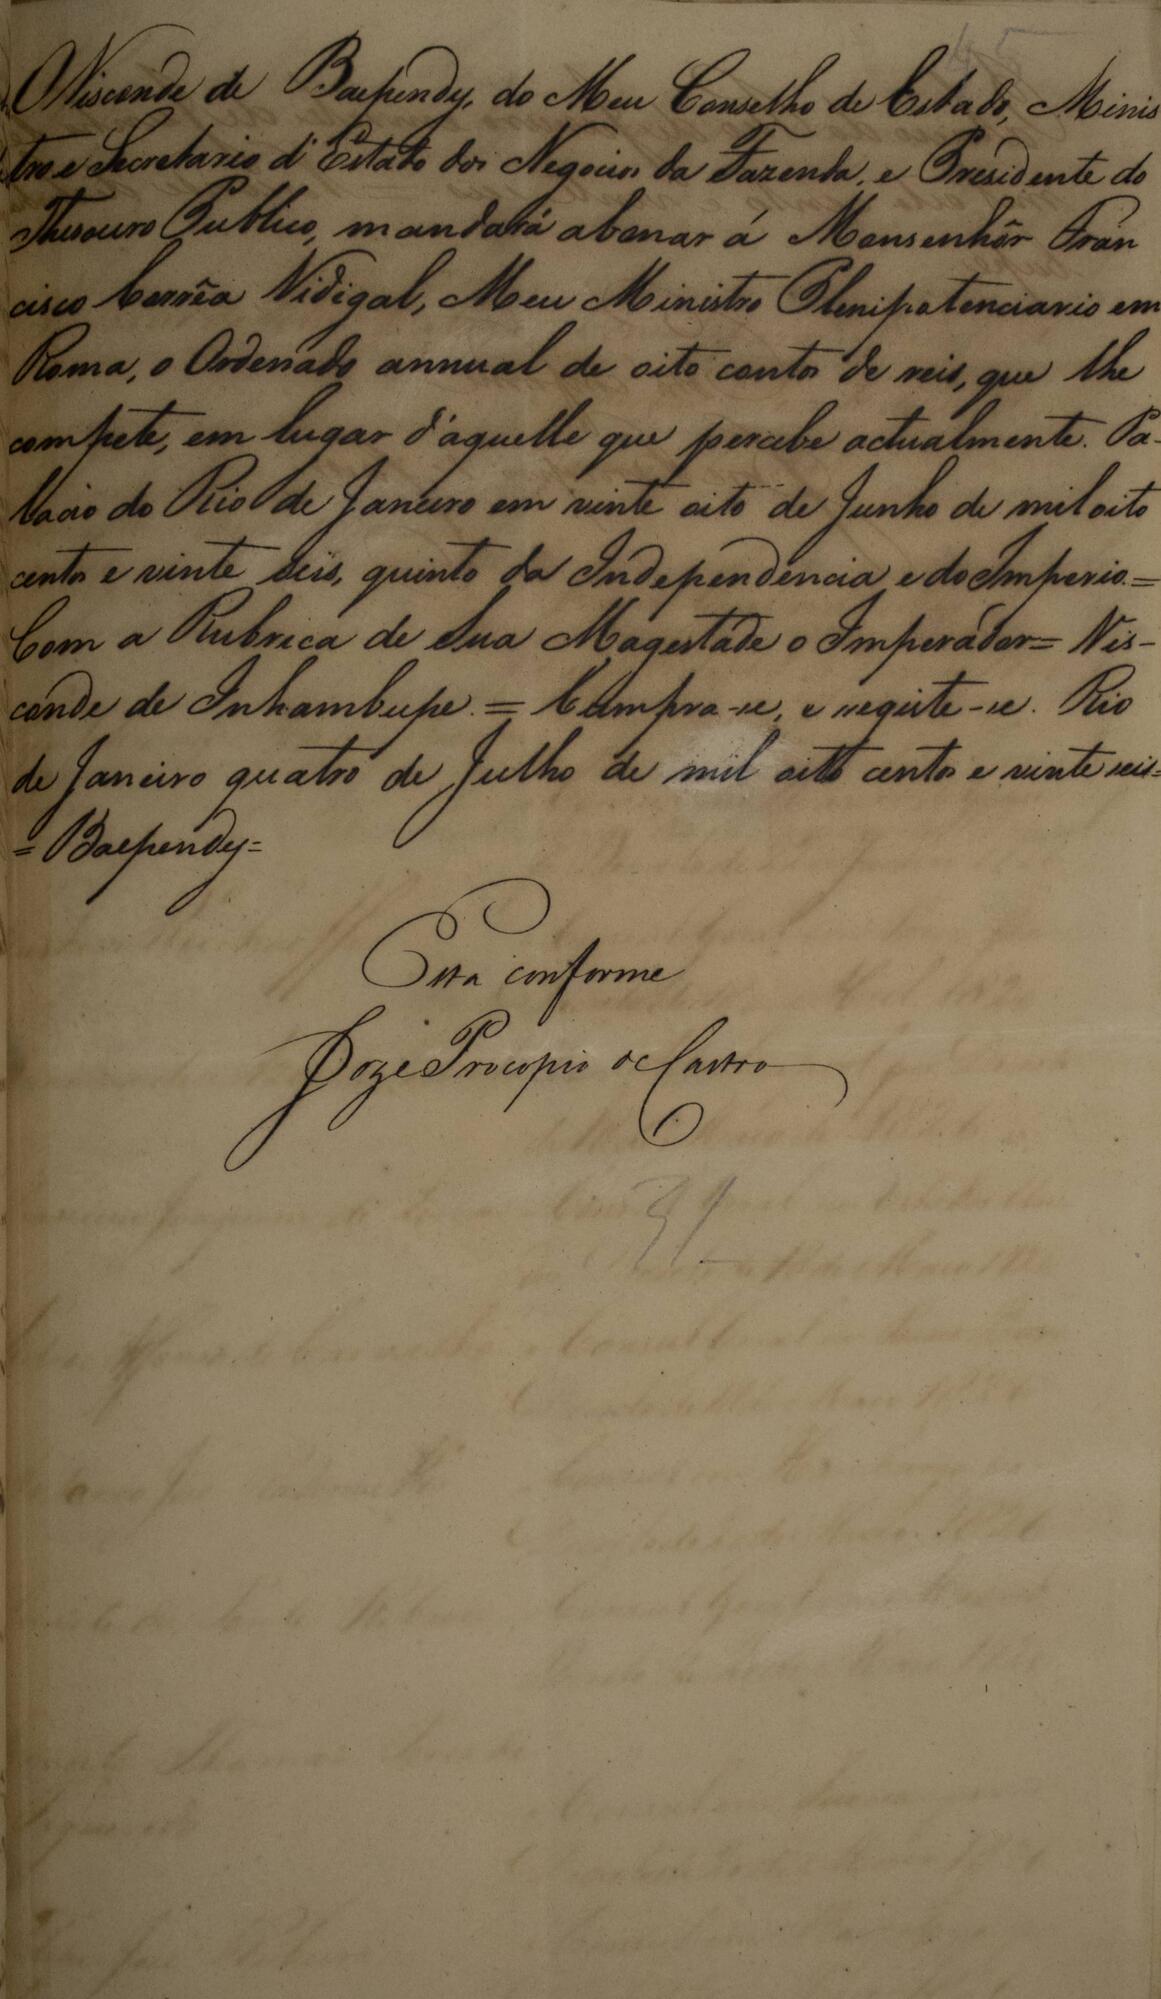 O Visconde de Baependy, do Meu Conselho de Estado, Minis
tro e Secretario d'Estado dos Negocios da Fazenda, e Presidente do
Thesouro Publico, mandará abonar á Monsenhôr Fran
cisco Corrêa Vidigal, Meu Ministro Plenipotenciario em
Roma, o Ordenado annual de oito contos de reis, que lhe
compete, em lugar d'aquelle que percebe actualmente. Pa-
lacio do Rio de Janeiro em vinte oito de Junho de mil oito
centos e vinte seis, quinto da Independencia e do Imperio.=
Com a Rubrica de Sua Magestade o Imperador= Vis-
conde de Inhambupe.= Cumpra-se, e registe-se. Rio
de Janeiro quatro de Julho de mil oito centos e vinte seis=
=Baependy=
Esta conforme
Joze Procopio de Castro